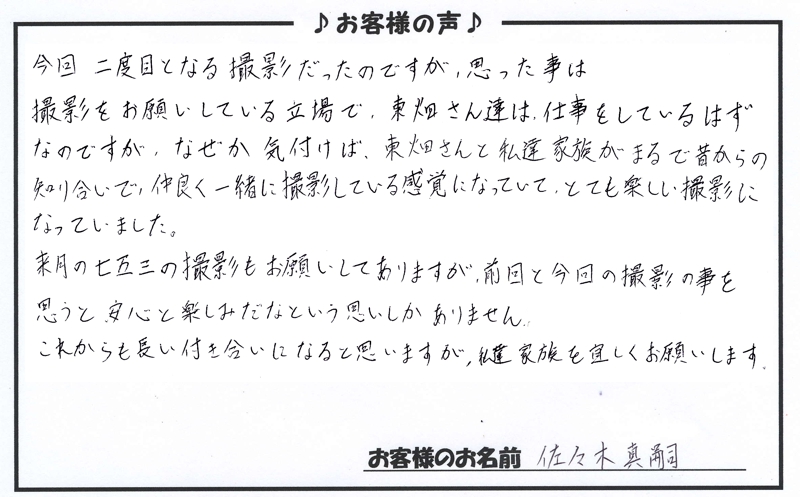 ♪お客様の声♪
今回 二度目となる撮影だったのですが、思った事は
撮影をお願いしている立場で、東畑さん達は、仕事をしているはず
なのですが、なぜか 気付けば、東畑さんと私達家族がまるで昔からの
知り合いで、仲良く一緒に撮影している感覚になっていて、とても楽しい撮影に
なっていました。
来月の七五三の撮影もお願いしてありますが、前回と今回の撮影の事を
思うと 安心と楽しみだなという思いしかありません。
これからも長い付き合いになると思いますが、私達家族を宜しくお願いします。
お客様のお名前 佐々木真嗣